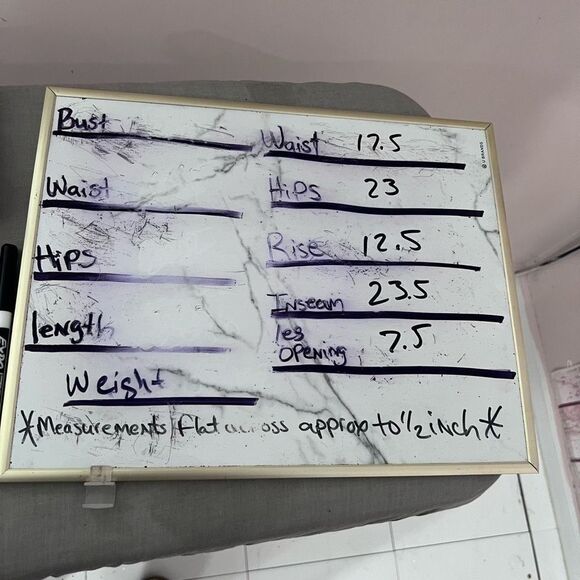 Bust
Waist
Hips
length
Weight
Waist 17.5
Hips 23
Rise 12.5
Inseam 23.5
leg
opening 7.5
*Measurements flat across approp to 1/2 inch*
U BRANDS
EXPO